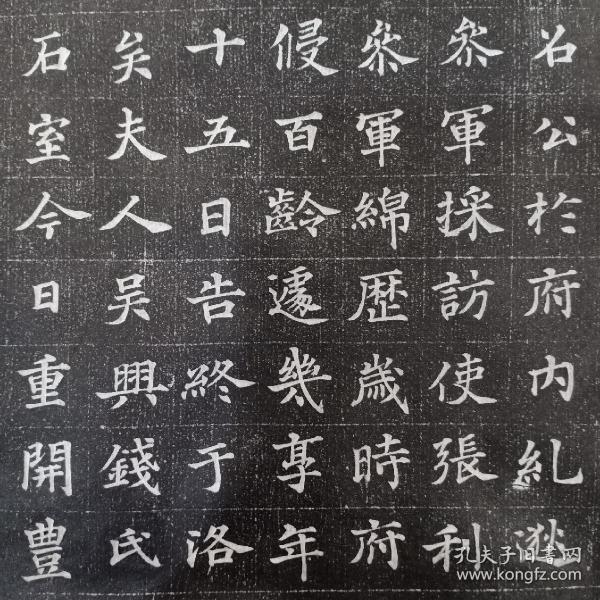 召公於府内糺逖
叅軍採訪使張利
叅軍綿歴歲時府
侵百齡遽幾享年
十五日告終于洛
矣夫人吴興錢氏
石室今日重開豊
孔夫子旧书网
www.kongfz.com